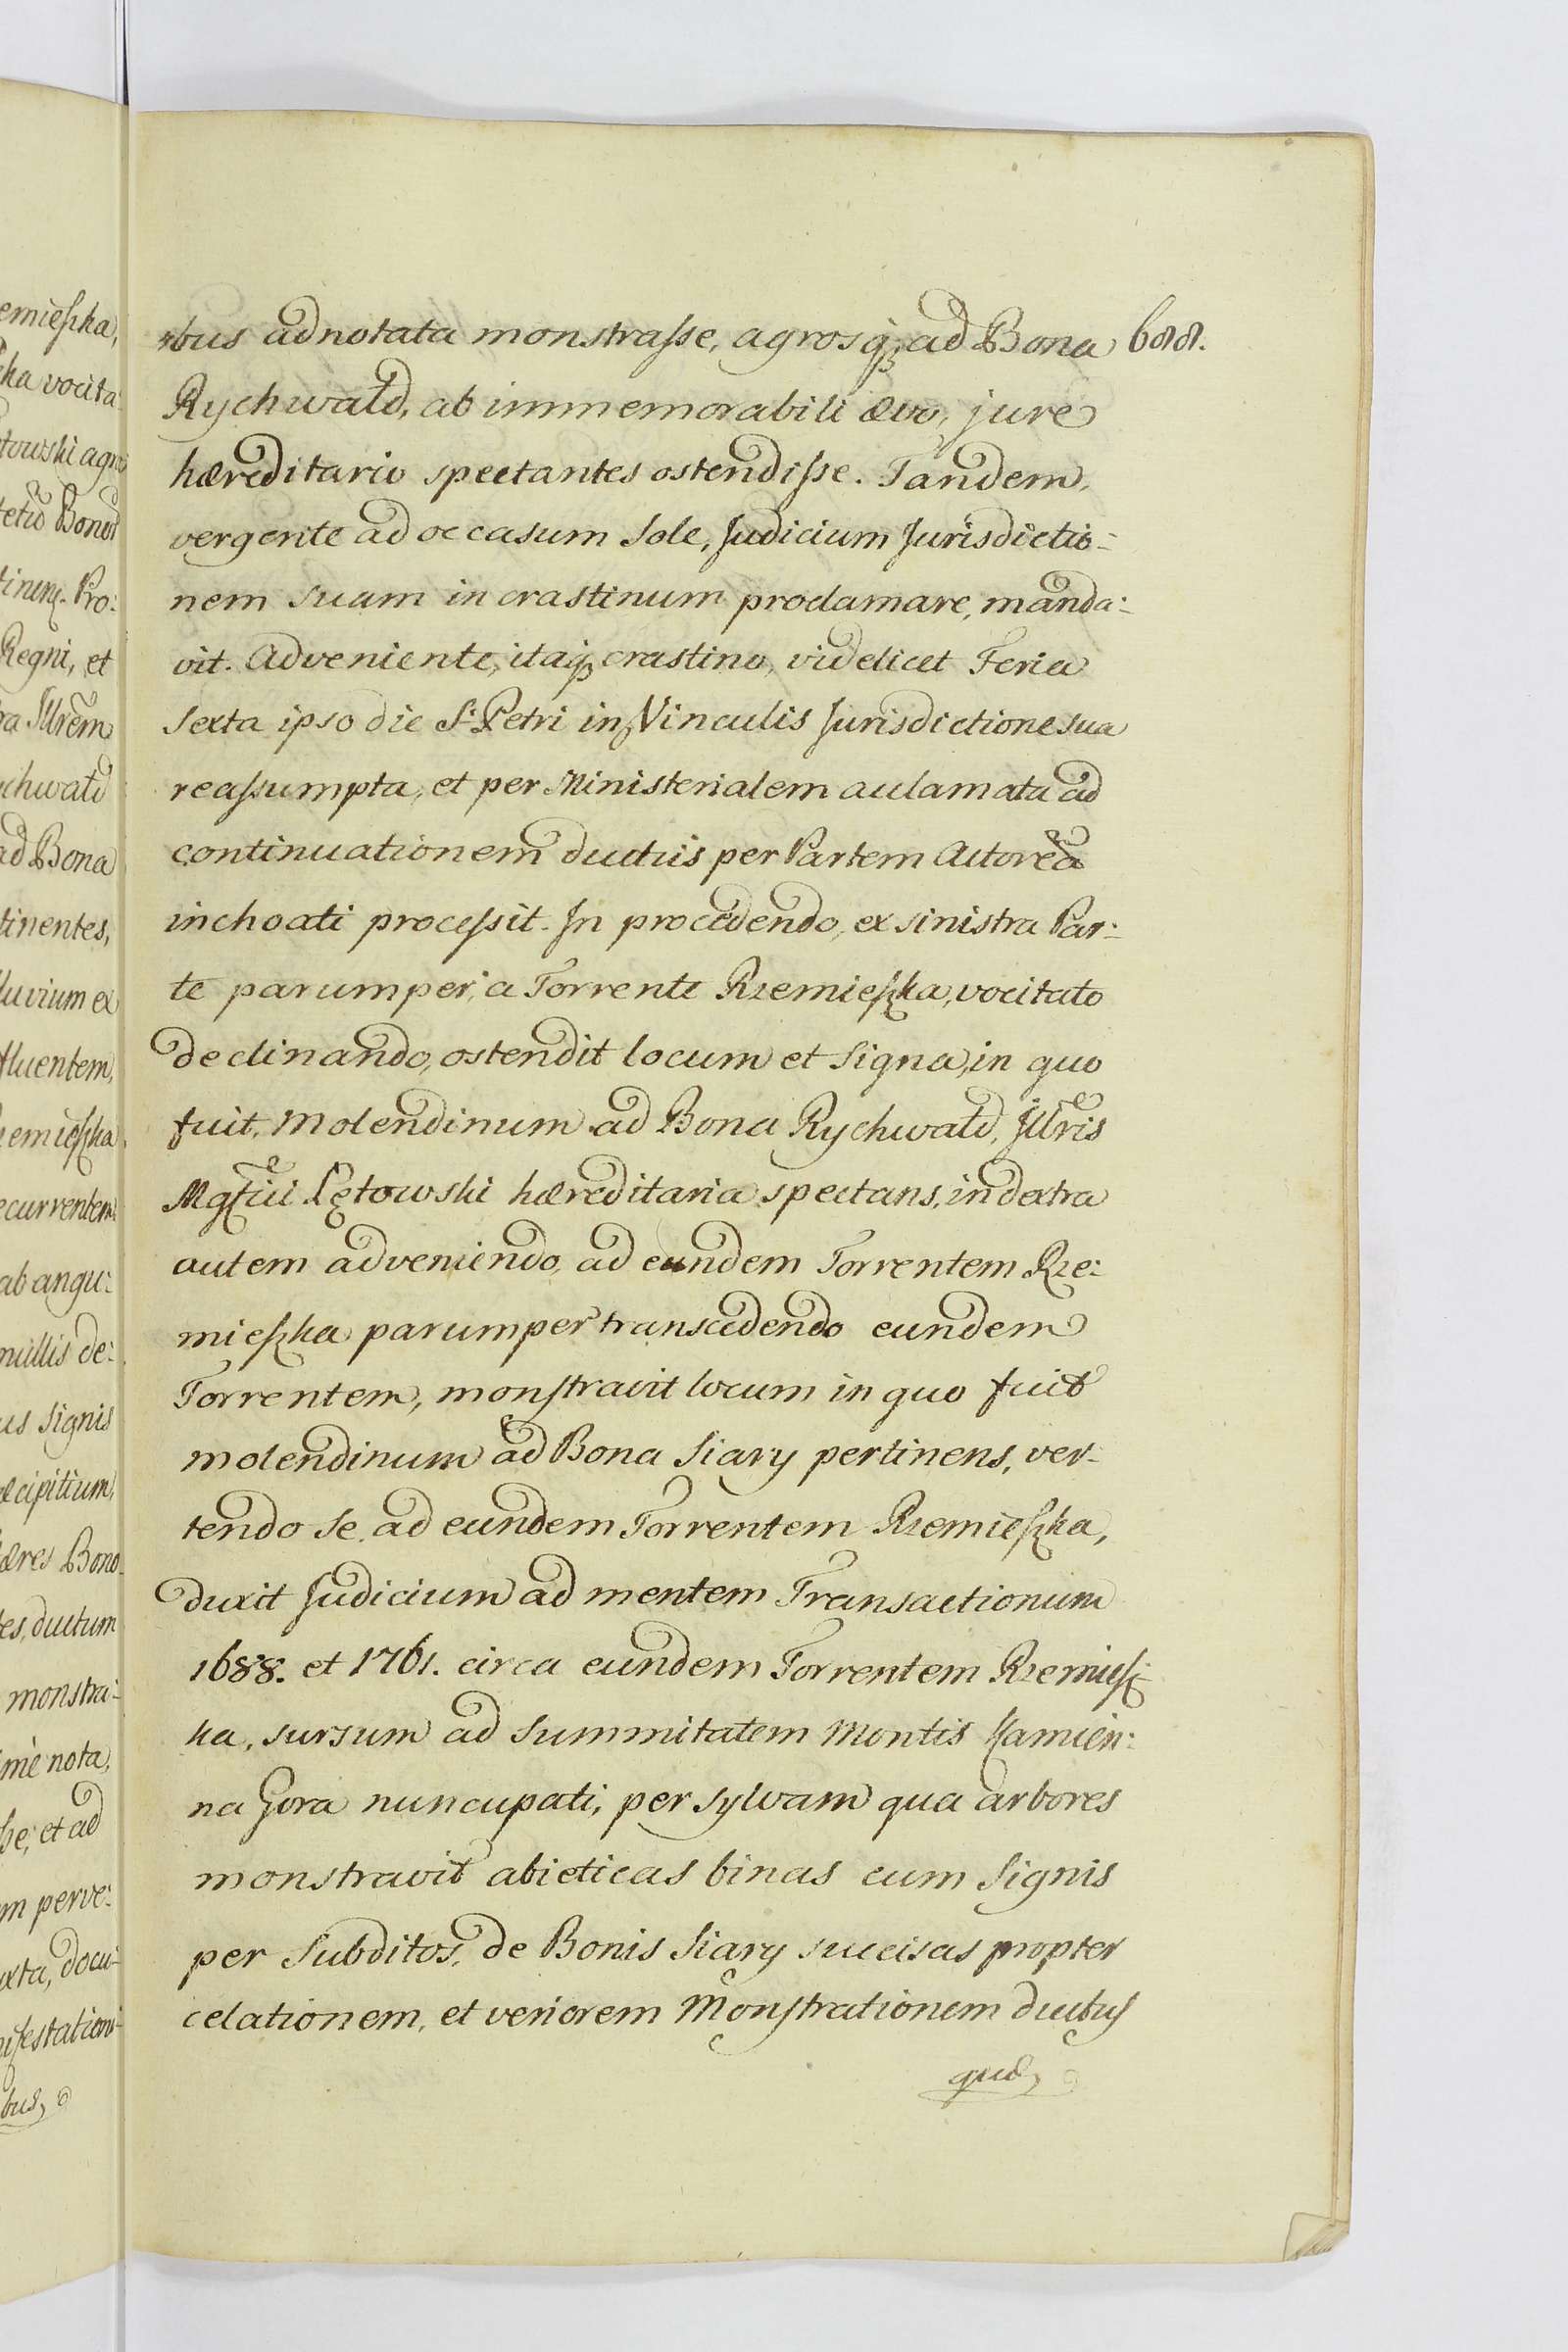 emieſzka,
ka vocita
towski agro
Bonor
Pro:
Regni, et
ra Illrem
ychwald
ad Bona
tinentes,
luvium ex
fluentem,
emieſzka
ecurrentem
ab angu:
nullis de:
us Signis
æcipitium,
Hæres Bono
es, ductum
monstra:
me nota,
ſse, et ad
m perve:
uxta, docu-
nifestationi-
bus,
bus adnotata monstraſse, agrosq; ad Bona 688.
Rychwald, ab immemorabili ævo, jure
hæreditario spectantes ostendiſse. Tandem,
vergente ad occasum Sole, Judicium Jurisdictio-
nem suam in crastinum proclamare, manda:
vit. Adveniente, itaq; crastino, videlicet Feria
Sexta ipso die S. Petri in Vinculis Jurisdictione sua
reaſsumpta, et per Ministerialem acclamata ad
continuationem ductus per Partem Actorea
inchoati proceſsit. In procedendo, ex sinistra Par:
te parumper, a Torrente Rzemieſzka, vocitato
declinando, ostendit locum et Signa, in quo
fuit, Molendinum ad Bona Rychwald, Jllris
Mgfici Lętowski hæreditaria spectans, in dextra
autem adveniendo, ad eundem Torrentem Rze:
mieſzka parumper transcedendo eundem
Torrentem, monſtravit locum in quo fuit
molendinum ad Bona Siary pertinens, ver-
tendo Se, ad eundem Torrentem Rzemieſzka,
duxit Judicium ad mentem Transactionum
1688. et 1761. circa eundem Torrentem Rzemieſz-
ka, sursum ad Summitatem Montis Kamien:
na Gora nuncupati, per sylvam qua arbores
monstravit abieticas binas cum Signis
per Subditos, de Bonis Siary succisas propter
celationem, et veriorem Monſtrationem ductuſ
quæ,